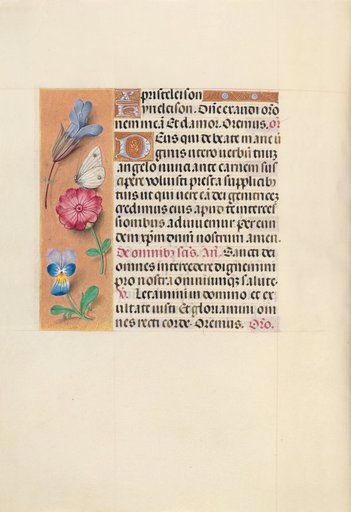 xpristeleison
kyrieleison. Dñe exaudi orõ
nem meã Et clamor. Oremus. or
Deus qui de beate marie vi
ginis utero verbũ tuuz
angelo nunciante carnem sus
cipere voluisti presta supplicibz
tuis ut qui vere eã dei genitricez
credimus eius apud te interces
sionibus adiuvemur per eum
dem xp̃m dñm nostrum amen.
De omnibus sc̃is. Añ. Sancti dei
omnes intercedere dignemini
pro nostra omniumqz salute
V. Letamini in domino et ex
ultate iusti Et gloriamini om
nes recti corde. Oremus. Orõ.